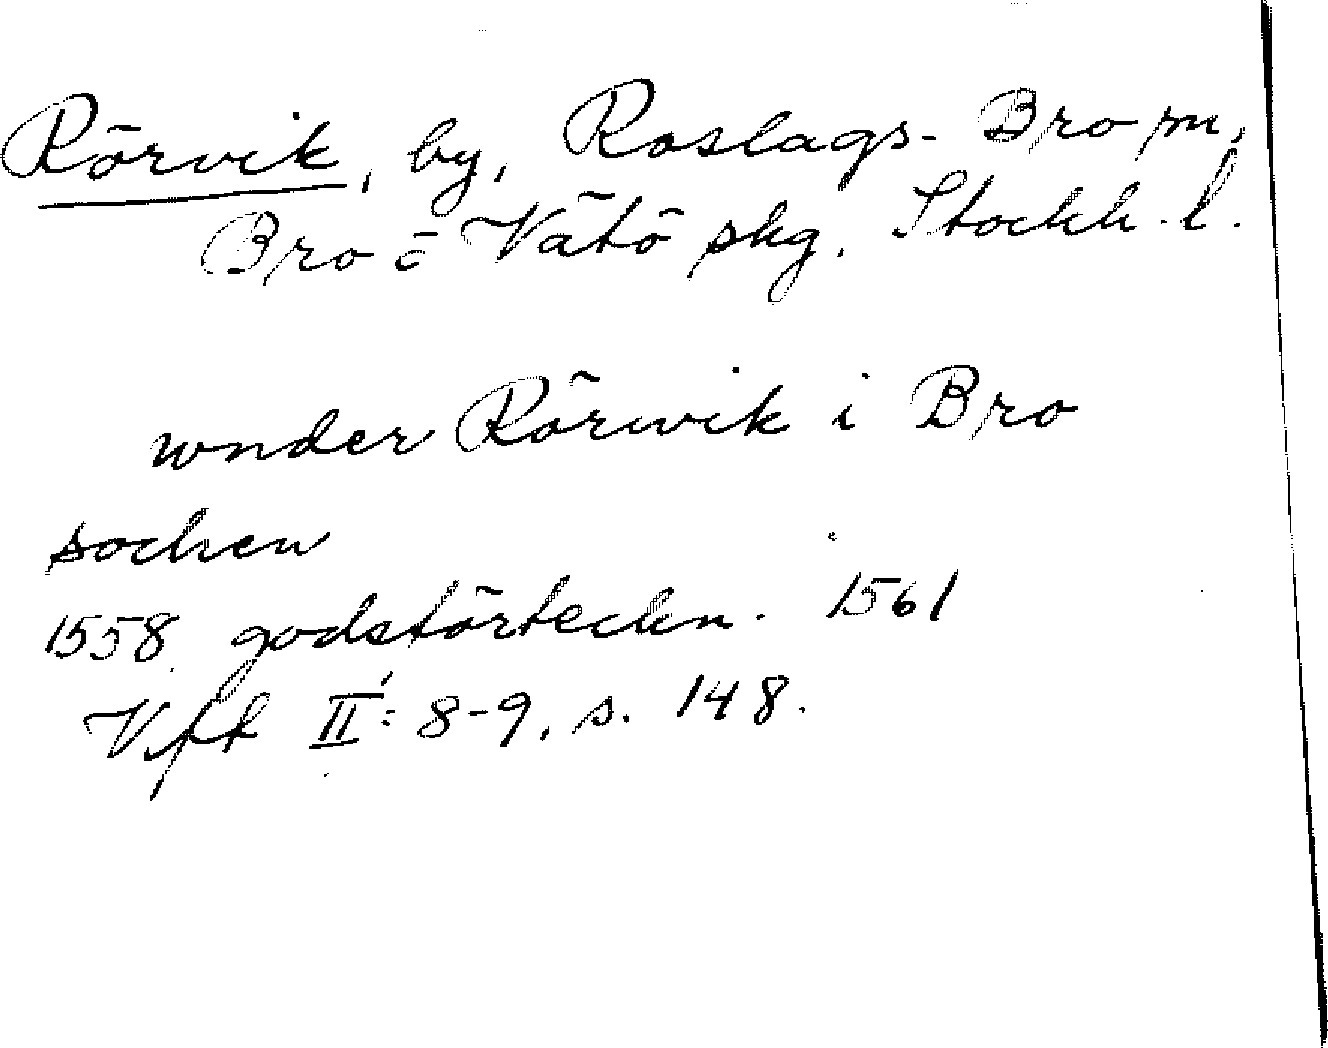 Rörvik, by, Roslags-Bro sn,
Bro o Vätö skg. Stockh. l.
wnder Rörwik i Bro
sochen
1558 godsförteckn. 1561
Vft II: 8-9, s. 148.